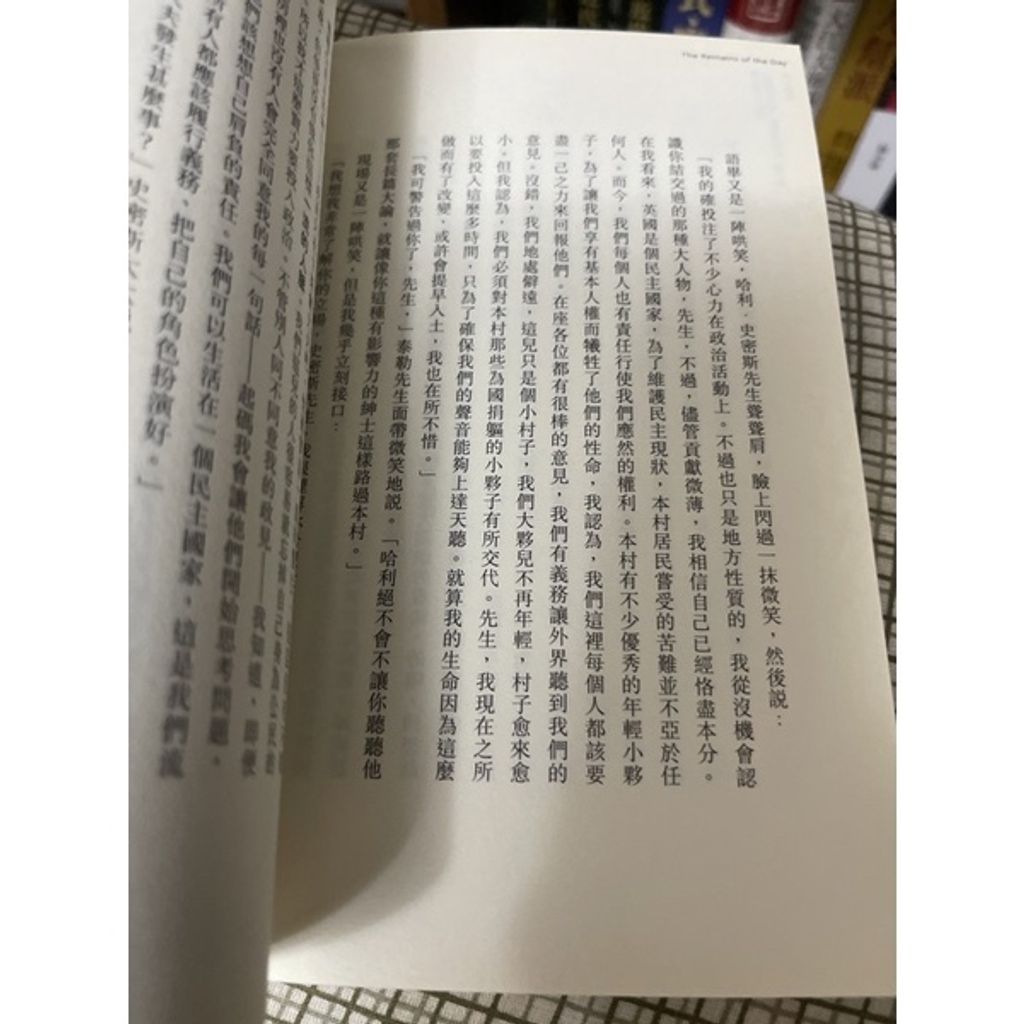 The Remains of the Day
語畢又是一陣哄笑，哈利．史密斯先生聳聳肩，臉上閃過一抹微笑，然後説：
「我的確投注了不少心力在政治活動上。不過也只是地方性質的，我從沒機會認
識你結交過的那種大人物，先生，不過，儘管貢獻微薄，我相信自己已經恪盡本分。
在我看來，英國是個民主國家，為了維護民主現狀，本村居民嘗受的苦難並不亞於任
何人。而今，我們每個人也有責任行使我們應然的權利。本村有不少優秀的年輕小夥
子，為了讓我們享有基本人權而犧牲了他們的性命，我認為，我們這裡每個人都該要
盡一己之力來回報他們。在座各位都有很棒的意見，我們有義務讓外界聽到我們的
意見。沒錯，我們地處僻遠，這兒只是個小村子，我們大夥兒不再年輕，村子愈來愈
小。但我認為，我們必須對本村那些為國捐軀的小夥子有所交代。先生，我現在之所
以要投入這麼多時間，只為了確保我們的聲音能夠上達天聽。就算我的生命因為這麼
做而有了改變，或許會提早入土，我也在所不惜。」
「我可警告過你了，先生，」泰勒先生面帶微笑地説。「哈利絕不會不讓你聽聽他
那套長篇大論，就讓像你這種有影響力的紳士這樣路過本村。」
現場又是一陣哄笑，但是我幾乎立刻接口：
「我想我非常了解你的立場，史密斯先生
會完全同意我的每一句話——起碼我會讓他們開始思考問題，
該想想自己肩負的責任。我們可以生活在一個民主國家，這是我們
有人都應該履行義務、把自己的角色扮演好。」
發生甚麼事？」史密斯